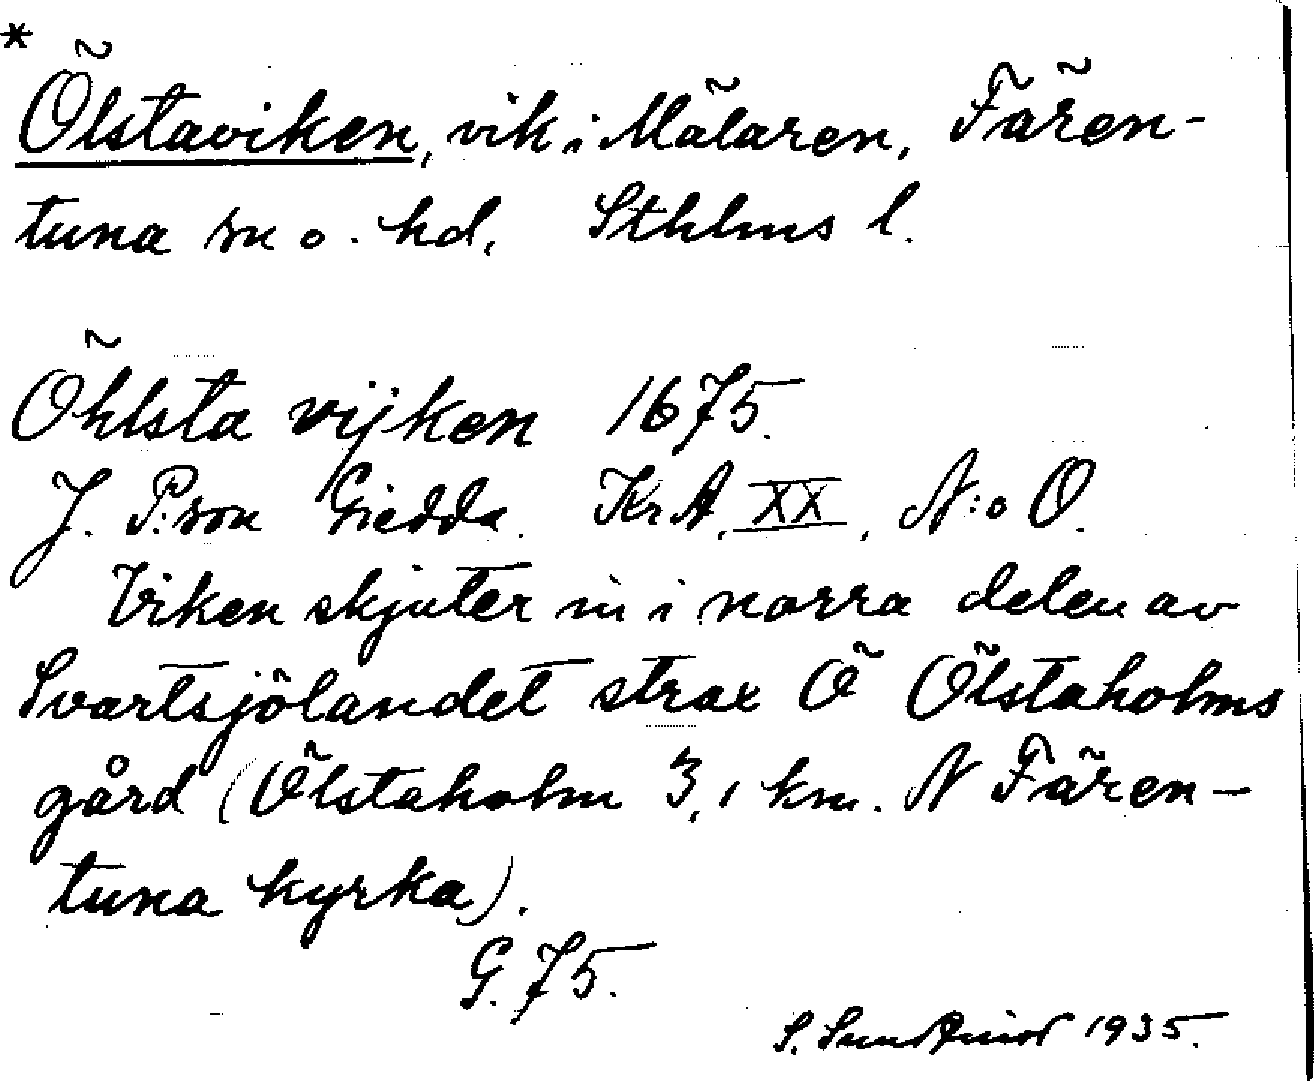 *
Ölstaviken, vik i Mälaren, Fären-
tuna sn o. hd, Sthlms l.
Öhlsta vijken 1675.
J. P:son Giedda. KrA, XX, N:o O.
Viken skjuter in i norra delen av
Svartsjölandet strax Ö Ölstaholms
gård (Ölstaholm 3,1 km. N Fären-
tuna kyrka).
G. 75.
S. 1935.